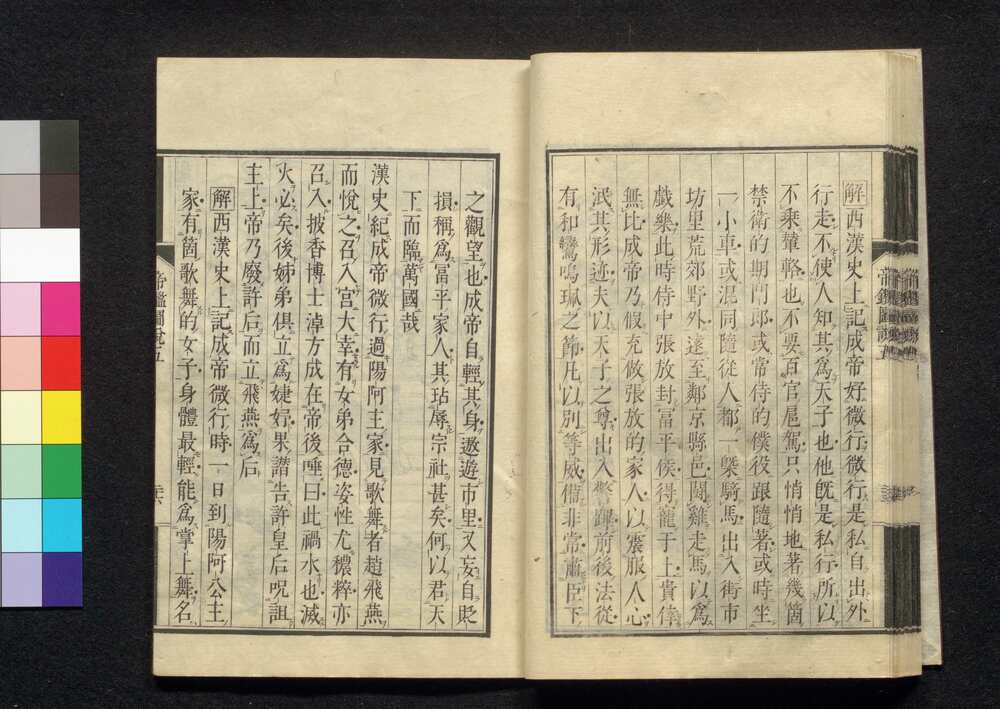 解西漢史上記成帝好微行微行是私自出外
行走不使人知其爲天子也他旣是私行所以
不乘輦輅也不要百官扈駕只悄悄地著幾箇
禁衛的期門郎或常侍的僕役跟隨著或時坐
一小車或混同隨從人都一槩騎馬出入街市
坊里荒郊野外遠至鄰京縣邑鬪雞走馬以爲
戲樂此時侍中張放封冨平侯得寵于上貴倖
無比成帝乃假充做張放的家人以褻服人心
泯其形迹夫以天子之尊出入警蹕前後法從
有和鸞鳴珮之節凡以別等威備非常肅臣下
之觀望也成帝自輕其身遨遊市里又妄自貶
損稱爲冨平家人其玷辱宗社甚矣何以君天
下而臨萬國哉
漢史紀成帝微行過陽阿主家見歌舞者趙飛燕
而悅之召入宮大幸有女弟合德姿性尤穠粹亦
召入披香博士淖方成在帝後唾曰此禍水也滅
火必矣後姊弟俱立爲婕妤果譖告許皇后呪詛
主上帝乃廢許后而立飛燕爲后
解西漢史上記成帝微行時一日到陽阿公主
家有箇歌舞的女子身體最輕能爲掌上舞名
帝鑑圖說五